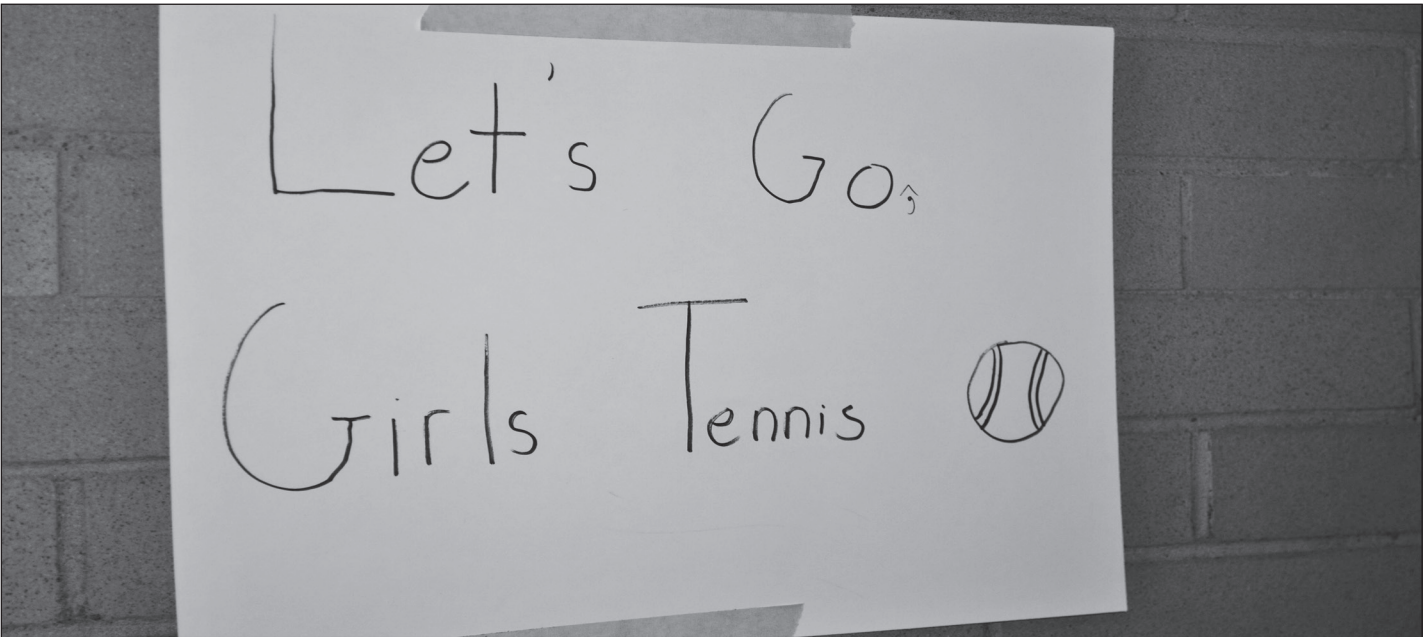 Let's Go,
Girls Tennis